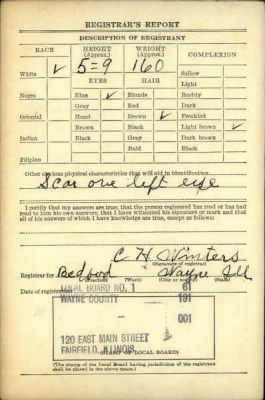 REGISTRAR'S REPORT
DESCRIPTION OF REGISTRANT
RACE HEIGHT (Approx.) WEIGHT (Approx.) COMPLEXION
White ✓ 5=9 160 Sallow
EYES HAIR Light
Negro Blue ✓ Blonde Ruddy
Gray Red Dark
Oriental Hazel Brown ✓ Freckled
Brown Black Light brown ✓
Indian Black Gray Dark brown
Bald Black
Filipino
Other obvious physical characteristics that will aid in identification
Scar over left eye
I certify that my answers are true; that the person registered has read or has had
read to him his own answers; that I have witnessed his signature or mark and that
all of his answers of which I have knowledge are true, except as follows:
C H Winters
(Signature of registrar)
Registrar for Bedford Wayne Ill
(Ward) (City or county) (State)
Date of registration
LOCAL BOARD NO. 1 61
WAYNE COUNTY 191
001
120 EAST MAIN STREET
FAIRFIELD, ILLINOIS
(STAMP OF LOCAL BOARD)
(The stamp of the Local Board having jurisdiction of the registrant
shall be placed in the above space.)